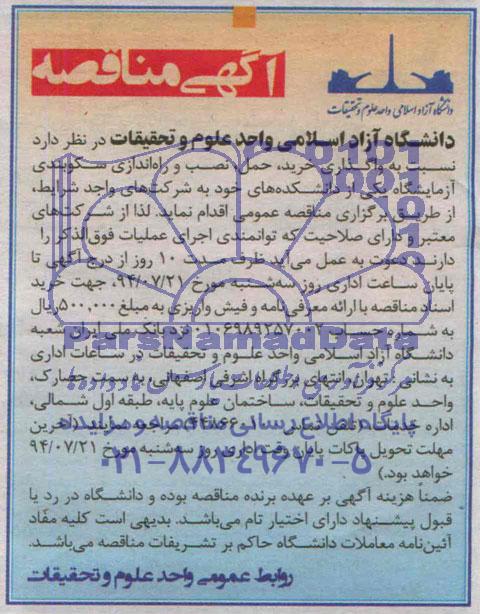 آگهی مناقصه
دانشگاه آزاد اسلامی واحد علوم و تحقیقات
دانشگاه آزاد اسلامی واحد علوم و تحقیقات در نظر دارد
نسبت به واگذاری خرید، حمل، نصب و راه‌اندازی سکوبندی
آزمایشگاه یکی از دانشکده‌های خود به شرکت‌های واجد شرایط،
از طریق برگزاری مناقصه عمومی اقدام نماید. لذا از شرکت‌های
معتبر و دارای صلاحیت که توانمندی اجرای عملیات فوق‌الذکر را
دارند دعوت به عمل می‌آید ظرف مدت ۱۰ روز از درج آگهی تا
پایان ساعت اداری روز سه‌شنبه مورخ ۹۴/۰۷/۲۱، جهت خرید
اسناد مناقصه با ارائه معرفی‌نامه و فیش واریزی به مبلغ ۵۰۰,۰۰۰ ریال
به شماره حساب نزد بانک ملی ایران شعبه
دانشگاه آزاد اسلامی واحد علوم و تحقیقات در ساعات اداری
به نشانی: تهران، انتهای بزرگراه اشرفی اصفهانی، به سمت حصارک،
واحد علوم و تحقیقات، ساختمان علوم پایه، طبقه اول شمالی،
اداره مراجعه نمایند. (آخرین
مهلت تحویل پاکات پایان وقت اداری روز سه‌شنبه مورخ ۹۴/۰۷/۲۱
خواهد بود.)
ضمنا هزینه آگهی بر عهده برنده مناقصه بوده و دانشگاه در رد یا
قبول پیشنهاد دارای اختیار تام می‌باشد. بدیهی است کلیه مفاد
آئین‌نامه معاملات دانشگاه حاکم بر تشریفات مناقصه می‌باشد.
روابط عمومی واحد علوم و تحقیقات
ParsNamadData
پایگاه اطلاع رسانی مناقصه و مزایده
۰۲۱-۸۸۳۴۹۶۷۰-۵